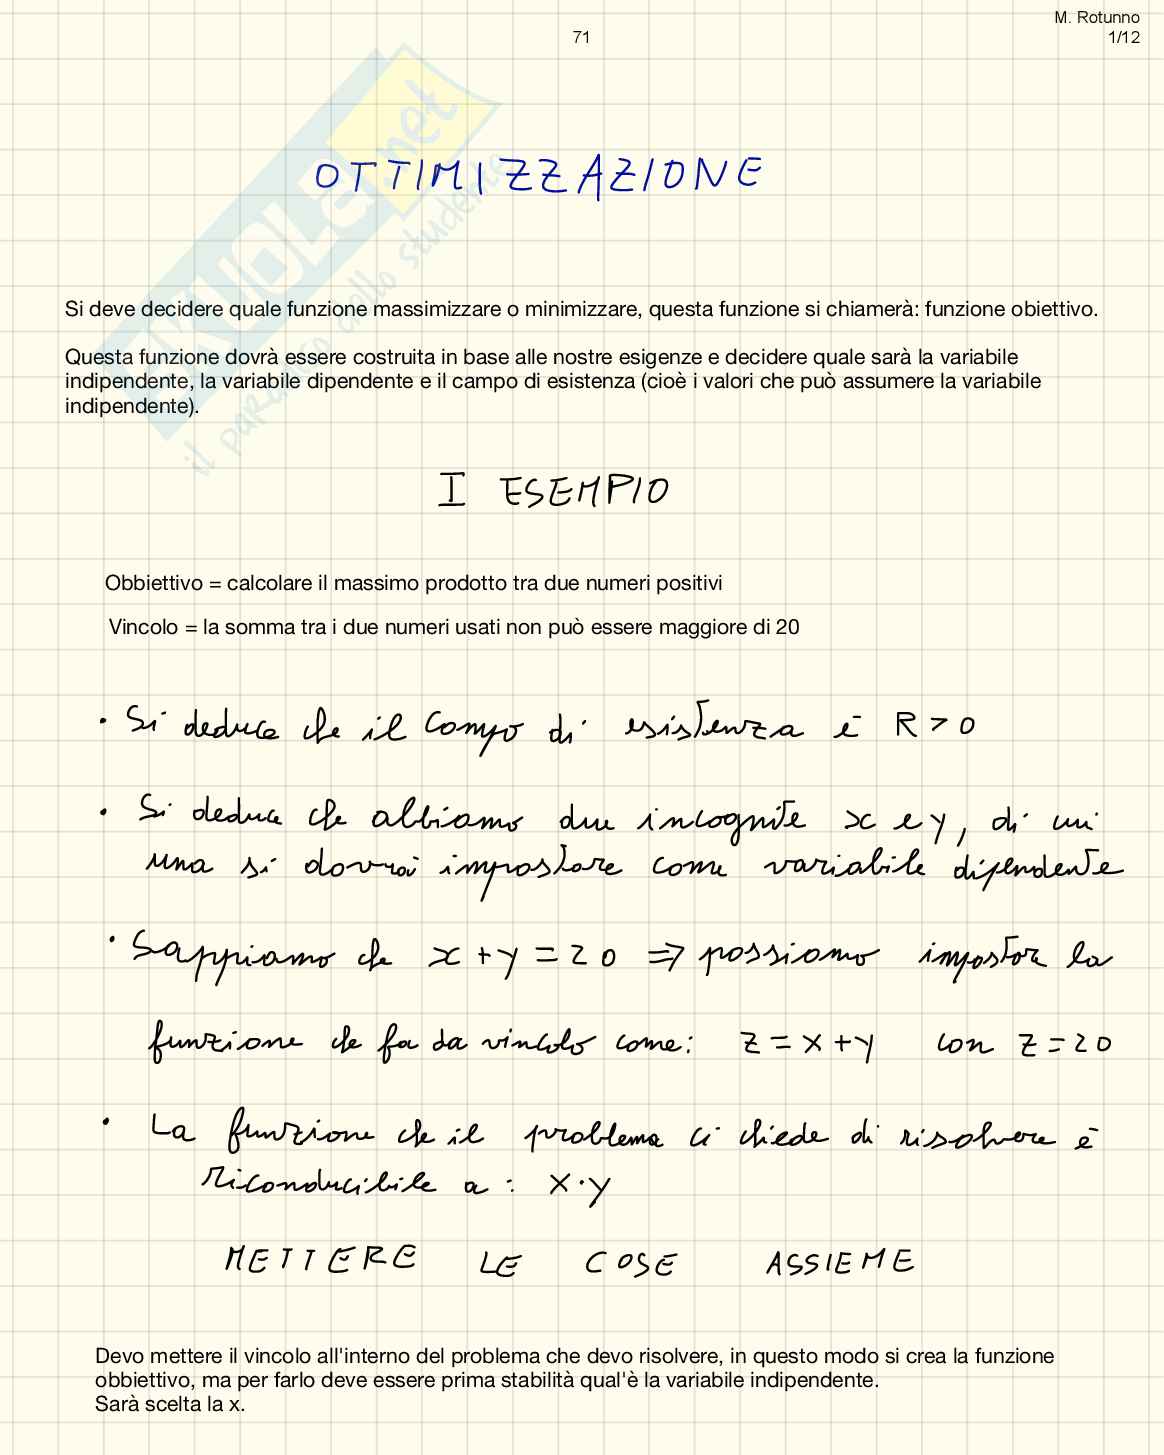 M. Rotunno
71
1/12
OTTIMIZZAZIONE
Si deve decidere quale funzione massimizzare o minimizzare, questa funzione si chiamerà: funzione obiettivo.
Questa funzione dovrà essere costruita in base alle nostre esigenze e decidere quale sarà la variabile
indipendente, la variabile dipendente e il campo di esistenza (cioè i valori che può assumere la variabile
indipendente).
I ESEMPIO
Obbiettivo = calcolare il massimo prodotto tra due numeri positivi
Vincolo = la somma tra i due numeri usati non può essere maggiore di 20
• Si deduce che il campo di esistenza è R > 0
• Si deduce che abbiamo due incognite x e y, di cui
una si dovrà impostare come variabile dipendente
• Sappiamo che x + y = 20 ⇒ possiamo impostare la
funzione che fa da vincolo come: z = x + y con z = 20
• La funzione che il problema ci chiede di risolvere è
riconducibile a : x · y
METTERE LE COSE ASSIEME
Devo mettere il vincolo all'interno del problema che devo risolvere, in questo modo si crea la funzione
obbiettivo, ma per farlo deve essere prima stabilità qual'è la variabile indipendente.
Sarà scelta la x.
SKUOLA.net
il paradiso dello studente